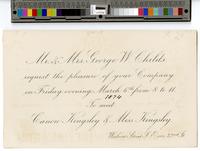 Mr. & Mrs. George W. Childs
request the pleasure of your Company
on Friday evening March 6th from 8 to 11.
1874
To meet
Canon Kingsley & Miss Kingsley.
Walnut Street